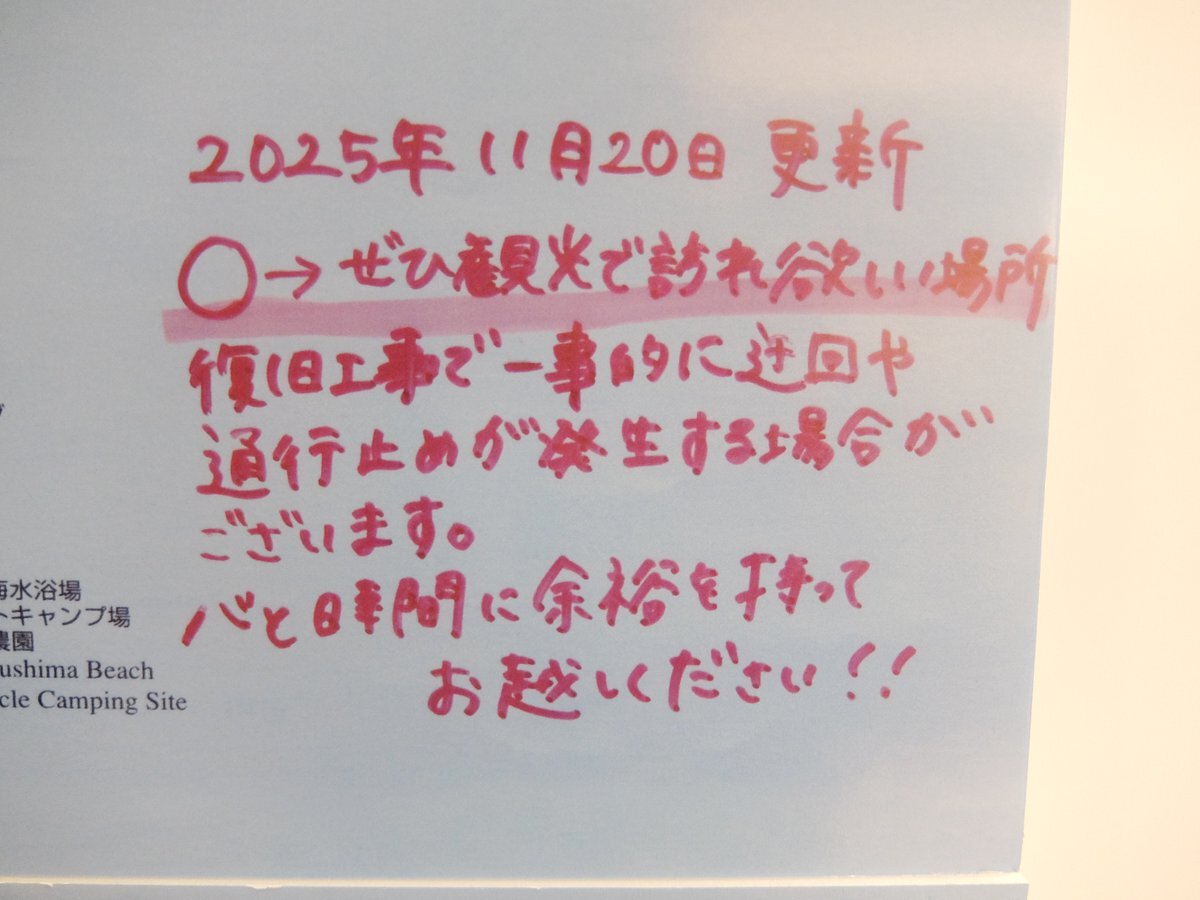 2025年 11月20日 更新
○→ぜひ観光で訪れ欲しい場所
復旧工事で一事的に迂回や
通行止めが発生する場合が
ございます。
心と時間に余裕を持って
お越しください!!
海水浴場
トキャンプ場
農園
ushima Beach
cle Camping Site